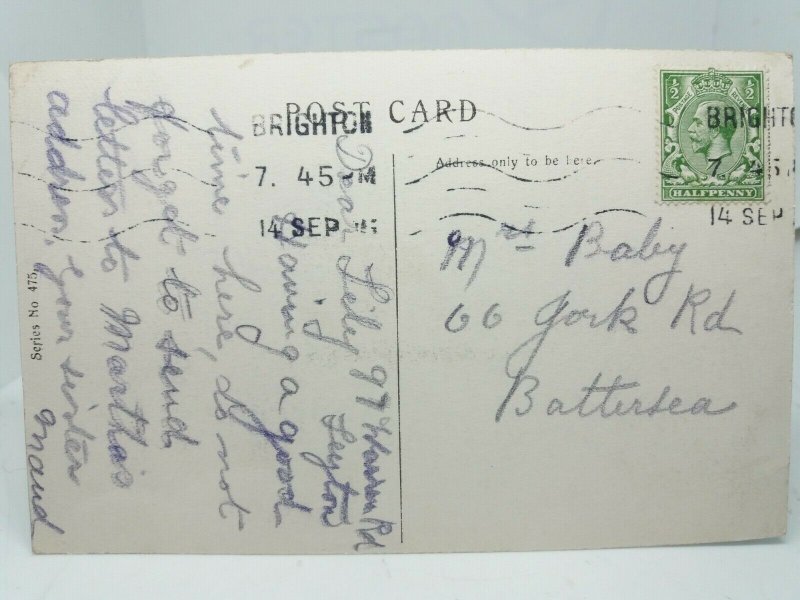 POST CARD
Address only to be here.
BRIGHTON
7. 45 PM
14 SEP
½ ½
HALFPENNY
BRIGHTO
7. 45
14 SEP
Mrs Baby
66 York Rd
Battersea
97 Warren Rd
Leyton
Dear Lily
Having a good
time here, do not
forget to send
letters to Martha's
address, your sister
Maud
Series No 475